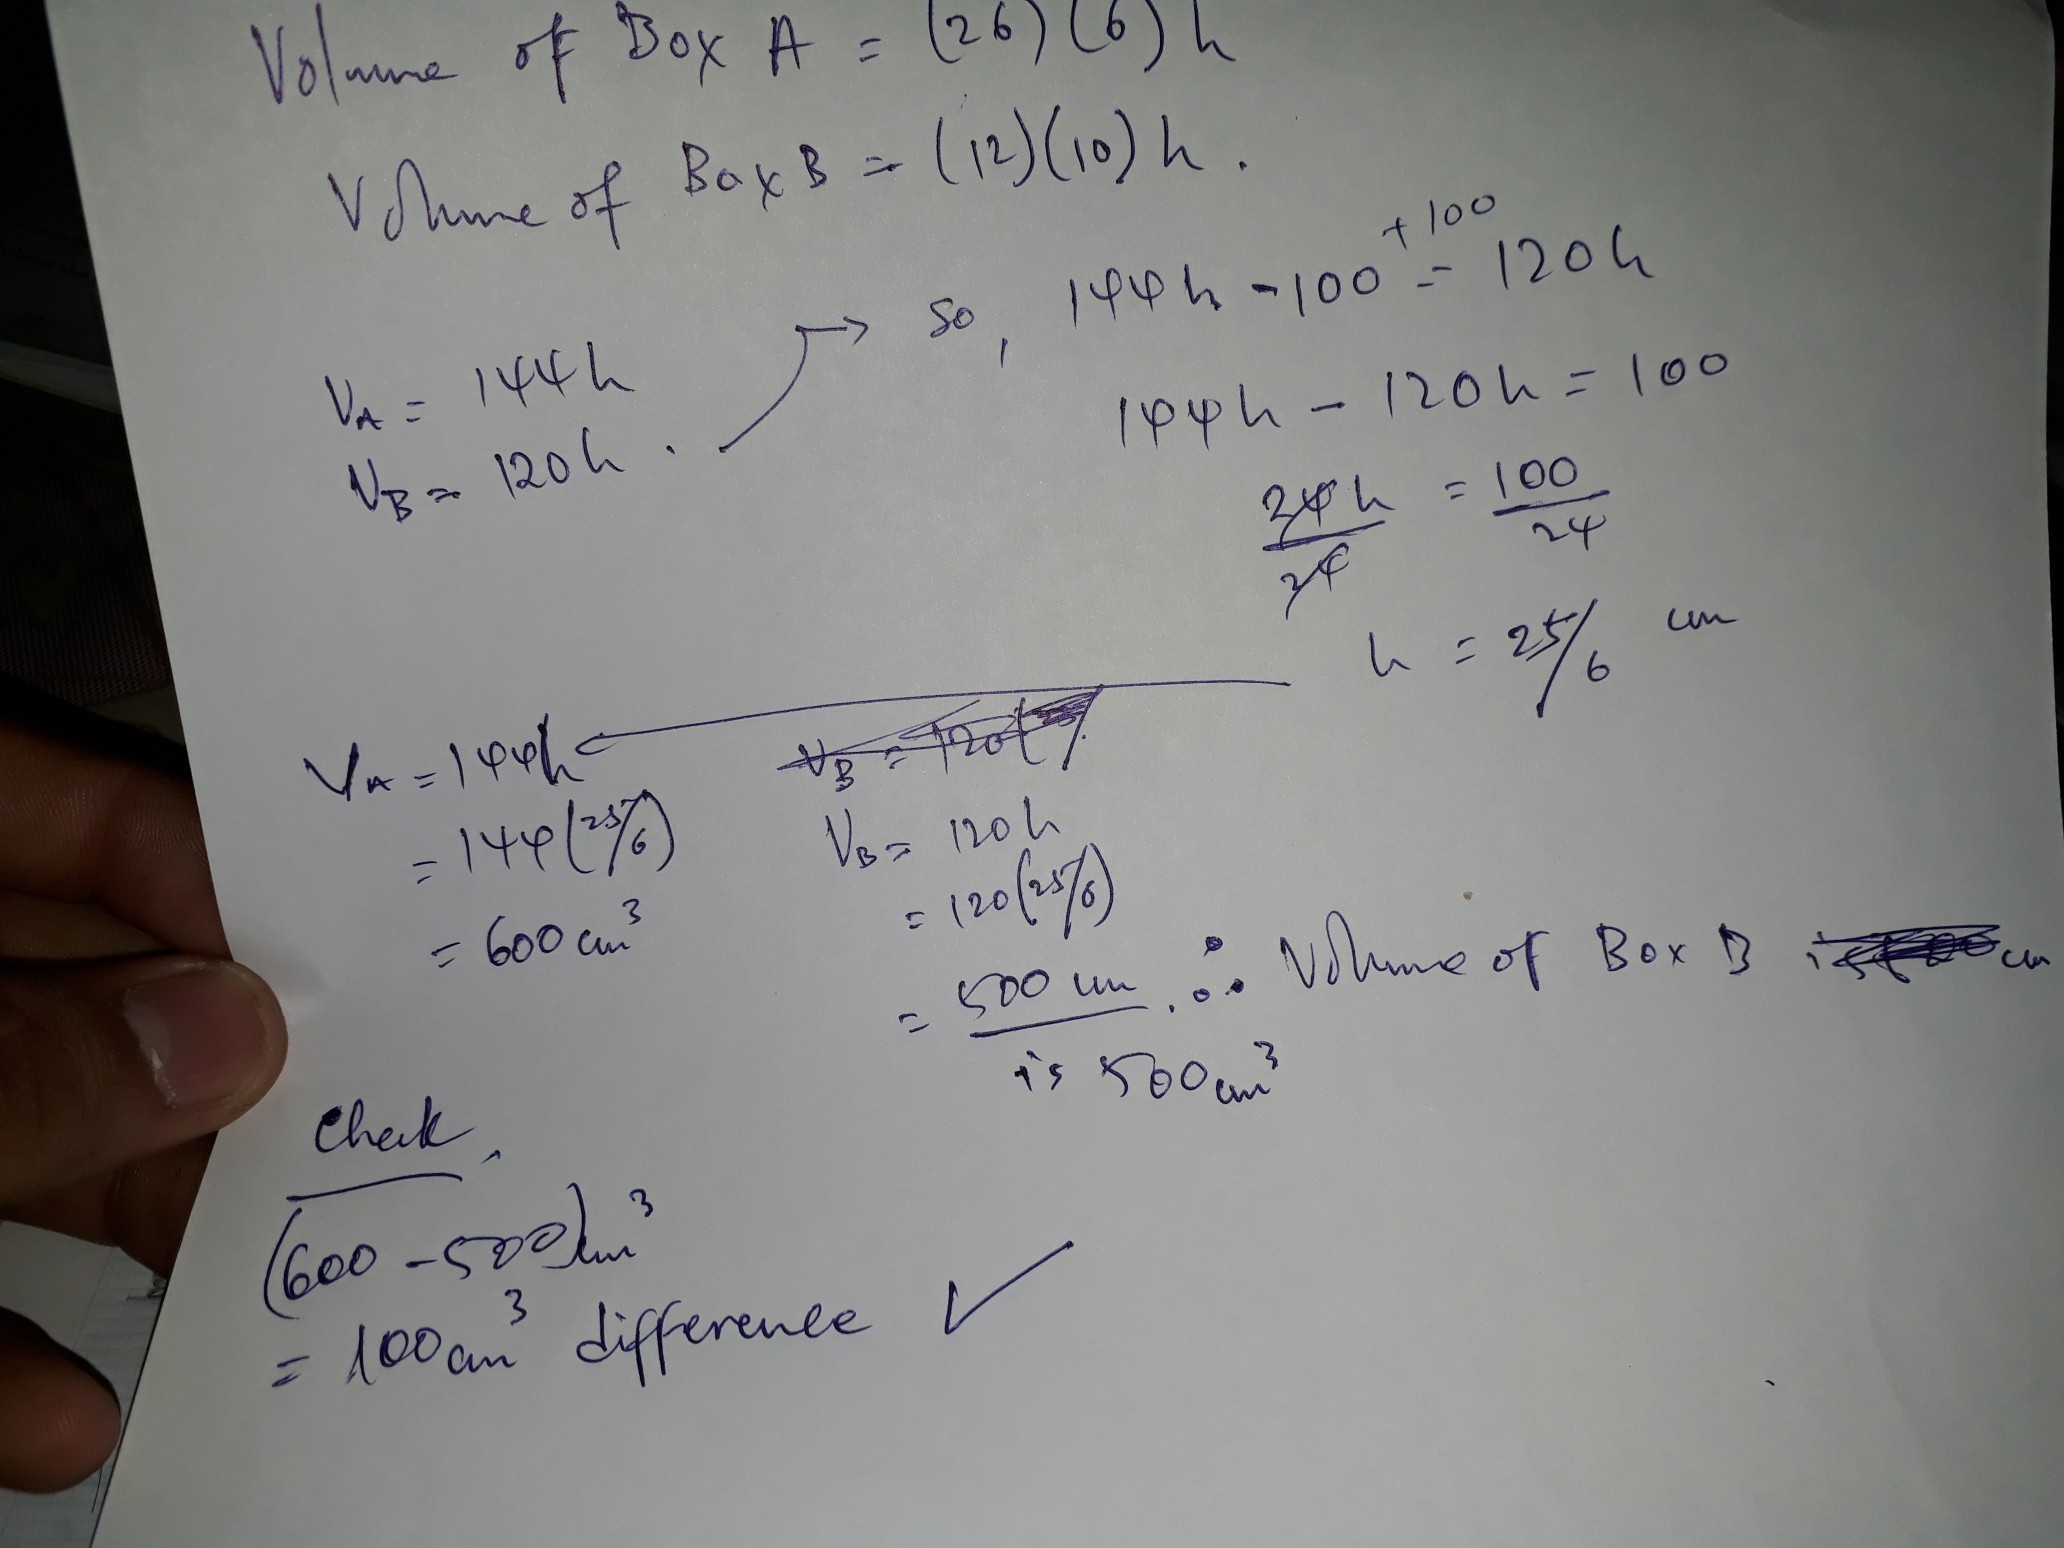 Volume of Box A = (26)(6)h
Volume of Box B = (12)(10)h.
VA = 144h
VB = 120h.
→ so, 144h - 100 +100 = 120h
144h - 120h = 100
24h/24 = 100/24
h = 25/6 cm
VA = 144h
= 144(25/6)
= 600 cm³
VB = 120(
VB = 120h
= 120(25/6)
= 500 cm.
∴ Volume of Box B cm
is 500 cm³
Check
(600 - 500)cm³
= 100 cm³ difference ✓